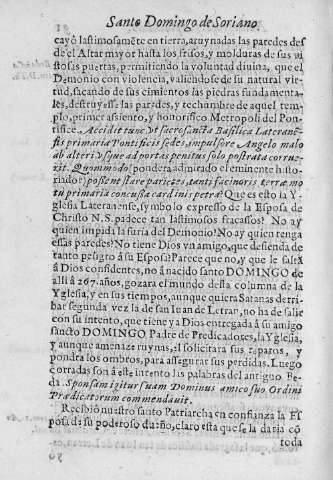 Santo Domingo de Soriano.
cayò lastimosamēte en tierra, aruynadas las paredes desde
el Altar mayor hasta los frisos, y molduras de sus vistosas
puertas, permitiendo la voluntad diuina, que el
Demonio con violencia, valiendose de su natural virtud,
sacando de sus cimientos las piedras fundamentales,
destruyesse las paredes, y techumbre de aquel templo,
primer assiento, y honorifico Metropoli del Pontifice.
Accidit tunc vt sacrosancta Basilica Lateranēsis
primaria Pontificis sedes, impulsore Angelo malo
ab alteri vsque ad portas penitus solo postrata corruerit.
Quommodo! pondera admirado el eminente historiador;
possent stare parietes, tanti facinoris terræ motu
primaria concussa cardinis petra? Que es esto la Yglesia
Lateranense, symbolo expresso de la Esposa de
Christo N.S. padece tan lastimosos fracassos? No ay
quien impida la furia del Demonio? No ay quien tenga
essas paredes? No tiene Dios vn amigo, que defienda de
tanto peligro à su Esposa? Parece que no, y que le saltā
à Dios confidentes, no à nacido santo DOMINGO de
alli à 267. años, gozara el mundo desta columna de la
Yglesia, y en sus tiempos, aunque quiera Satanas derribar
segunda vez la de san Iuan de Letran, no ha de salir
con su intento, que tiene ya Dios entregada à su amigo
sancto DOMINGO Padre de Predicadores, la Yglesia,
y aunque amenaze ruynas, èl solicitarà sus reparos, y
pondra los ombros, para assegurar sus perdidas. Luego
corradas son à este intento las palabras del antiguo Beda.
Sponsam igitur suam Dominus amico suo Ordini
Prædicatorum commendauit.
Recibiò nuestro santo Patriarcha en confiança la Esposa
de su poderoso dueño, claro esta que se la daria cō
toda